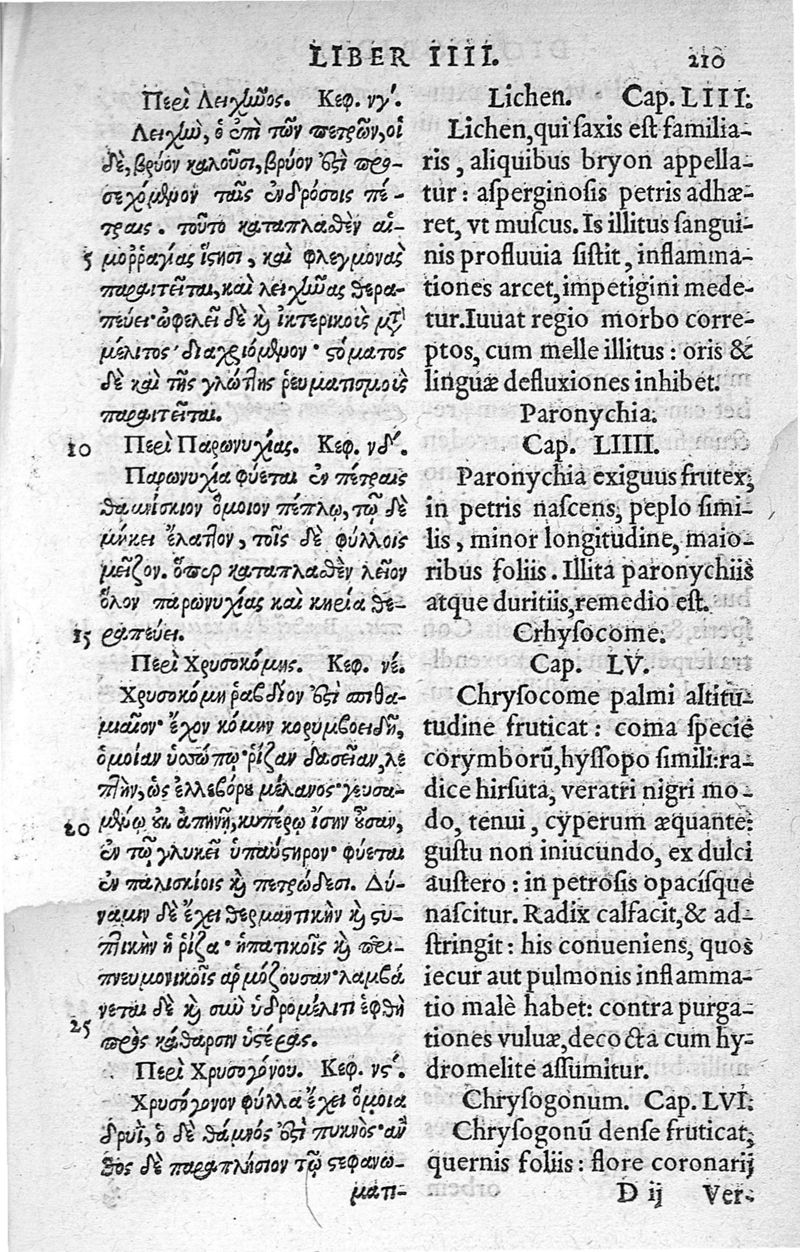 LIBER IIII. 210
Περὶ Λειχῆνος. Κεφ. νγʹ.
Λειχὴν, ὁ ἐπὶ τῶν πετρῶν, οἱ
δὲ, βρύον καλοῦσι, βρύον ἐστὶ προσ-
σεχόμενον ταῖς ἐνδρόσοις πέ-
τραις. τοῦτο καταπλασθὲν αἱ-
5 μορραγίας ἵστησι, καὶ φλεγμονὰς
παραιτεῖται, καὶ λειχῆνας θερα-
πεύει· ὠφελεῖ δὲ καὶ ἰκτερικοὺς μετὰ
μέλιτος διαχριόμενον· στόματος
δὲ καὶ τῆς γλώττης ῥευματισμοὺς
παραιτεῖται.
10 Περὶ Παρωνυχίας. Κεφ. νδʹ.
Παρωνυχία φύεται ἐν πέτραις
θαμνίσκιον ὅμοιον πέπλῳ, τῷ δὲ
μήκει ἔλαττον, τοῖς δὲ φύλλοις
μεῖζον. ὅπερ καταπλασθὲν λεῖον
ὅλον παρωνυχίας καὶ κηεία θε-
15 ραπεύει.
Περὶ Χρυσοκόμης. Κεφ. νέ.
Χρυσοκόμη ῥαβδίον ἐστὶ σπιθα-
μιαῖον· ἔχον κόμην κορυμβοειδῆ,
ὁμοίαν ὑσώπῳ· ῥίζαν δασεῖαν, λε
πτὴν, ὡς ἐλλεβόρου μέλανος· γευσα-
20 μένῳ οὐκ ἀπηνῆ, κυπέρῳ ἴσην οὖσαν,
ἐν τῷ γλυκεῖ ὑπαύστηρον· φύεται
ἐν παλισκίοις καὶ πετρώδεσι. Δύ-
ναμιν δὲ ἔχει θερμαντικὴν καὶ στυ-
πτικὴν ἡ ῥίζα· ἡπατικοῖς καὶ περι-
πνευμονικοῖς ἁρμόζουσαν· λαμβά
νεται δὲ καὶ σὺν ὑδρομέλιτι ἑφθὴ
25 πρὸς κάθαρσιν ὑστέρας.
Περὶ Χρυσογόνου. Κεφ. νϛʹ.
Χρυσόγονον φύλλα ἔχει ὅμοια
δρυῒ, ὁ δὲ θάμνός ἐστι πυκνός· ἄν
θος δὲ παραπλήσιον τῷ στεφανω-
ματι-
Lichen. Cap. LIII.
Lichen, qui saxis est familia-
ris, aliquibus bryon appella-
tur: asperginosis petris adhæ-
ret, vt muscus. Is illitus sangui-
nis profluuia sistit, inflamma-
tiones arcet, impetigini mede-
tur. Iuuat regio morbo corre-
ptos, cum melle illitus: oris &
linguæ defluxiones inhibet.
Paronychia.
Cap. LIIII.
Paronychia exiguus frutex,
in petris nascens, peplo simi-
lis, minor longitudine, maio-
ribus foliis. Illita paronychiis
atque duritiis, remedio est.
Crhysocome.
Cap. LV.
Chrysocome palmi altitu-
tudine fruticat: coma specie
corymborū, hyssopo simili: ra-
dice hirsuta, veratri nigri mo-
do, tenui, cyperum æquante:
gustu non iniucundo, ex dulci
austero: in petrosis opacisque
nascitur. Radix calfacit, & ad-
stringit: his conueniens, quos
iecur aut pulmonis inflamma-
tio malè habet: contra purga-
tiones vuluæ, decocta cum hy-
dromelite assumitur.
Chrysogonum. Cap. LVI.
Chrysogonū dense fruticat,
quernis foliis: flore coronarij
D ij Ver-